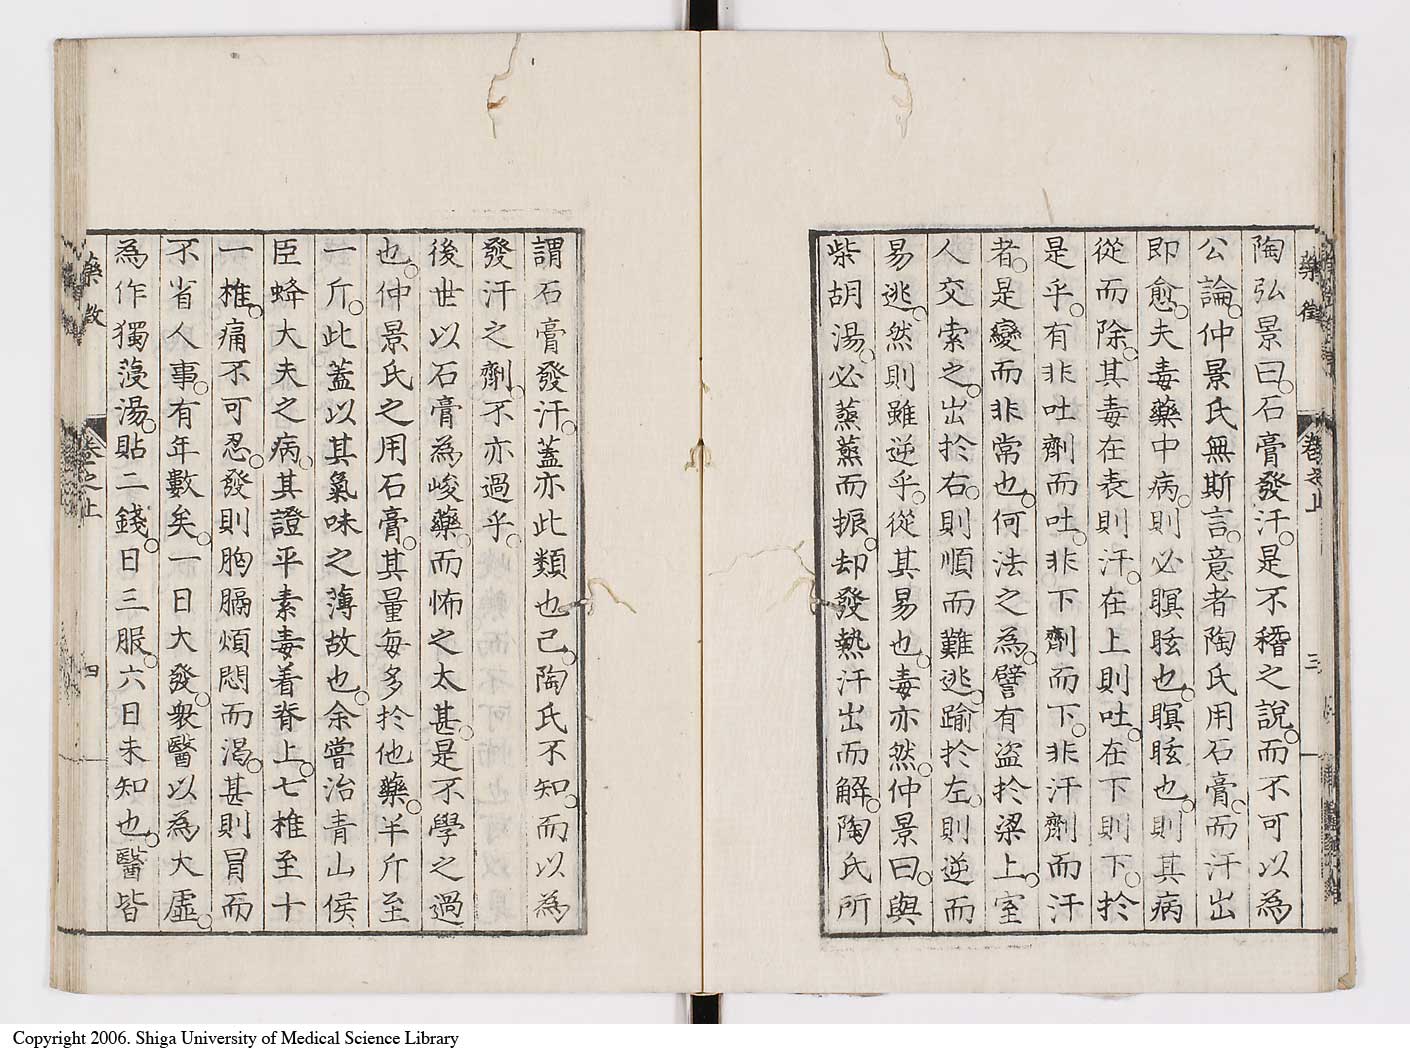 陶弘景曰。石膏發汗。是不稽之說。而不可以為
公論。仲景氏無斯言。意者陶氏用石膏。而汗出
即愈。夫毒藥中病。則必瞑眩也。瞑眩也。則其病
從而除。其毒在表則汗。在上則吐。在下則下。於
是乎。有非吐劑而吐。非下劑而下。非汗劑而汗
者。是變而非常也。何法之為。譬有盜於梁上。室
人交索之。出於右。則順而難逃。踰於左。則逆而
易逃。然則雖逆乎。從其易也。毒亦然。仲景曰。與
柴胡湯。必蒸蒸而振。却發熱汗出而解。陶氏所
謂石膏發汗。蓋亦此類也已。陶氏不知。而以為
發汗之劑。不亦過乎。
後世以石膏為峻藥。而怖之太甚。是不學之過
也。仲景氏之用石膏。其量每多於他藥。半斤至
一斤。此蓋以其氣味之薄故也。余嘗治青山侯
臣蜂大夫之病。其證平素毒着脊上。七椎至十
一椎。痛不可忍。發則胸膈煩悶而渴。甚則冒而
不省人事。有年數矣。一日大發。衆醫以為大虛。
為作獨蓡湯。貼二錢。日三服。六日未知也。醫皆
藥徴
卷之上
三
藥徴
卷之上
四
Copyright 2006. Shiga University of Medical Science Library